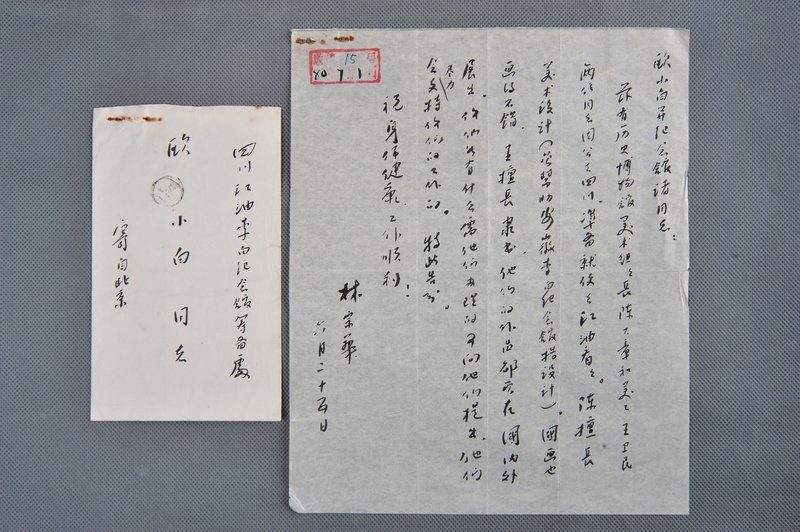 四川江油李白纪念馆筹备处
欧小白同志
寄自北京
15
80 7 1
欧小白并纪念馆诸同志：
兹有历史博物馆美术组组长陈大章和美工王卫民
两位同志因公去四川，准备就便去江油看看。陈擅长
美术设计（曾帮助安徽李白纪念馆搞设计）。国画也
画得不错，王擅长隶书，他们的作品都展在国内外
展出。你们如有什么需他们办理的可向他们提出，他们
会尽力支持你们的工作的。特此告知。
祝身体健康，工作顺利！
林宗华
六月二十五日